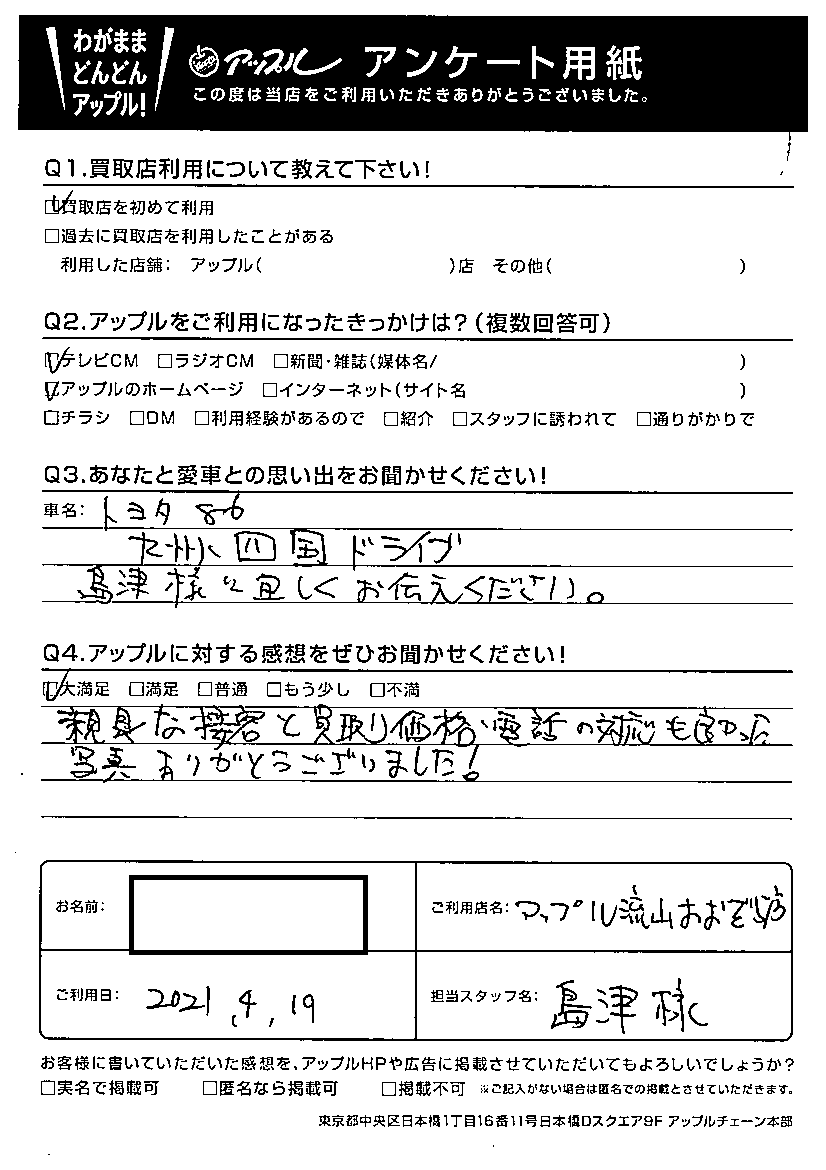 わがまま
どんどん
アップル!
アップル アンケート用紙
この度は当店をご利用いただきありがとうございました。
Q1.買取店利用について教えて下さい!
☑買取店を初めて利用
□過去に買取店を利用したことがある
利用した店舗: アップル( )店 その他( )
Q2.アップルをご利用になったきっかけは?(複数回答可)
☑テレビCM □ラジオCM □新聞・雑誌(媒体名/ )
☑アップルのホームページ □インターネット(サイト名 )
□チラシ □DM □利用経験があるので □紹介 □スタッフに誘われて □通りがかりで
Q3.あなたと愛車との思い出をお聞かせください!
車名: トヨタ 86
九州、四国ドライブ
島津様に宜しくお伝えください。
Q4.アップルに対する感想をぜひお聞かせください!
☑大満足 □満足 □普通 □もう少し □不満
親身な接客と買取り価格、電話の対応も良かった
写真ありがとうございました!
お名前:
ご利用店名: アップル流山おおぞら店
ご利用日: 2021.4.19
担当スタッフ名: 島津様
お客様に書いていただいた感想を、アップルHPや広告に掲載させていただいてもよろしいでしょうか?
□実名で掲載可 □匿名なら掲載可 □掲載不可 ※ご記入がない場合は匿名での掲載とさせていただきます。
東京都中央区日本橋1丁目16番11号日本橋Dスクエア9F アップルチェーン本部